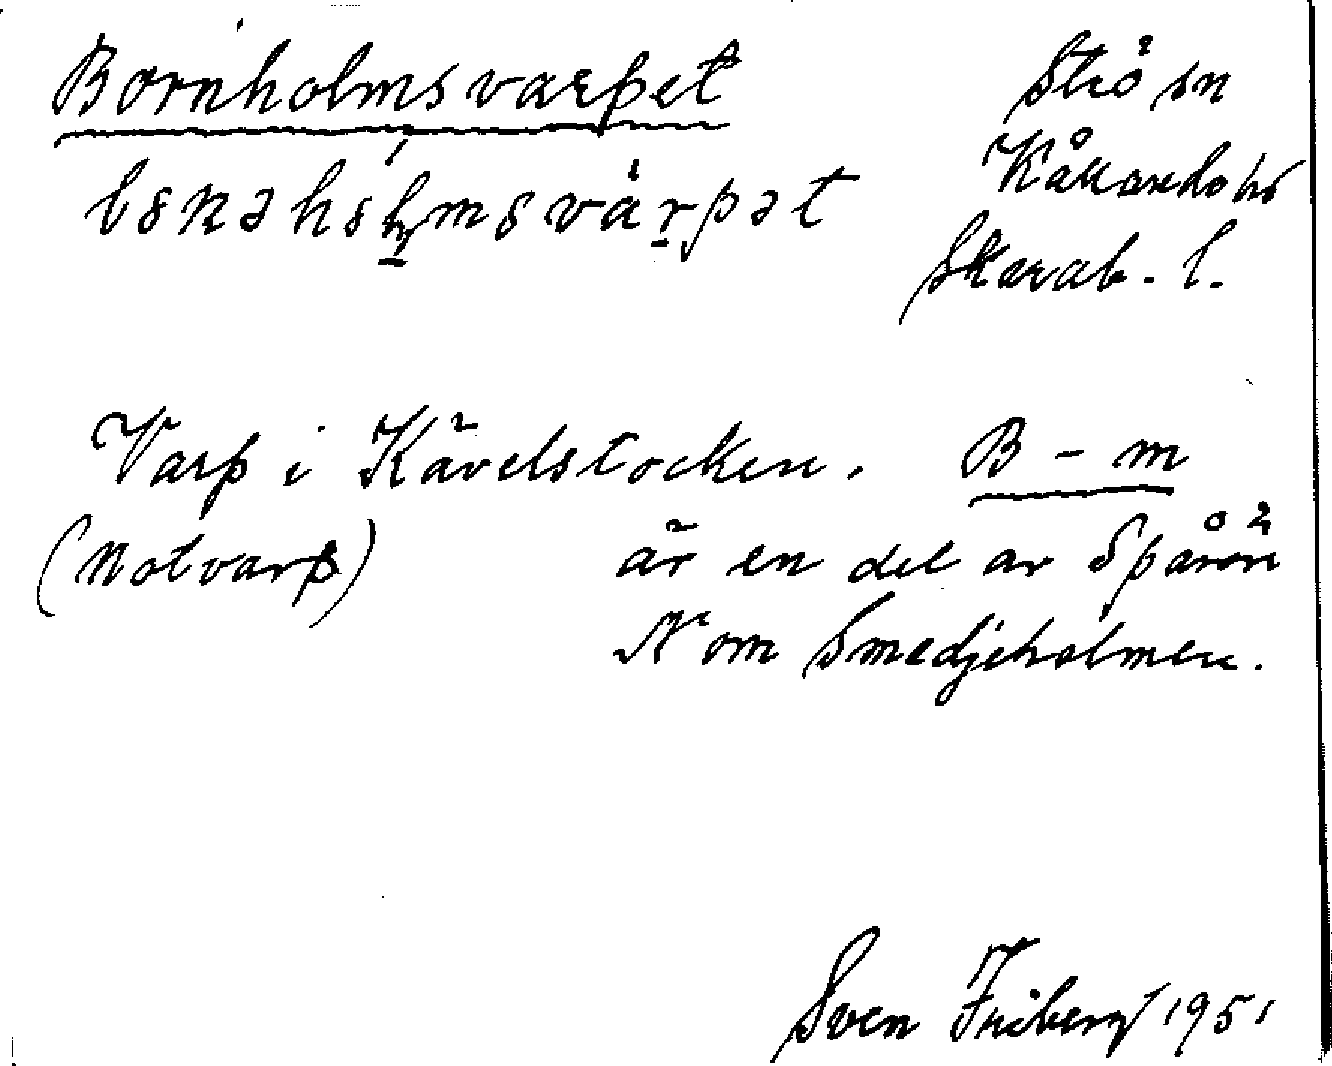 Bornholmsvarpet
Strö sn
Kållands hd
Skarab. l.
Varp i Kävelstocken. B - m
(Notvarp) är en del av Spårön
N om Smedjeholmen.
Sven Friberg 1951